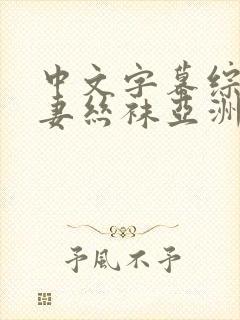 中文字幕综
妻丝袜亚洲
予風不予